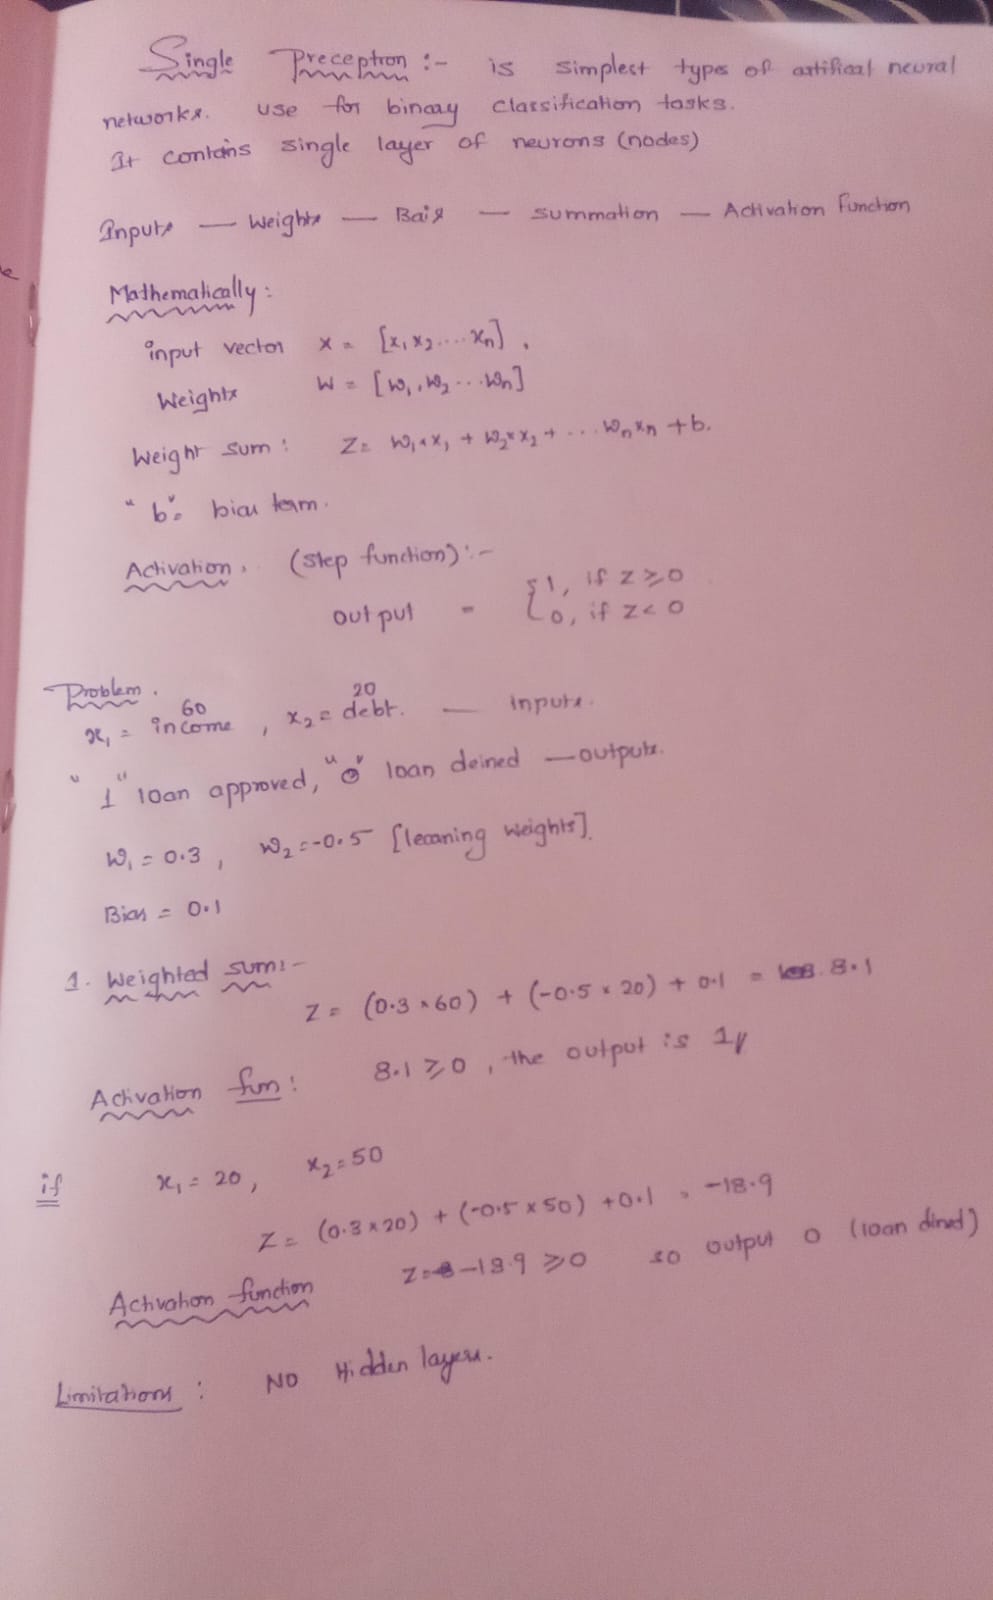 Single Preceptron :- is simplest types of artifical neural
networks. use for binary classification tasks.
It contains single layer of neurons (nodes)
Inputs — Weights — Bais — summation — Activation Function
Mathematically :
input vector X = [x₁ x₂ .... xₙ] .
Weights W = [w₁, w₂ ... wₙ]
Weight sum : Z = w₁*x₁ + w₂*x₂ + ... wₙxₙ + b.
"b" = bias term.
Activation. (step function) :-
output = {1, if z ≥ 0
0, if z < 0
Problem.
60 20
x₁ = income , x₂ = debt. — inputs.
"1" loan approved, "0" loan deined — outputs.
w₁ = 0.3 , w₂ = -0.5 [learning weights].
Bias = 0.1
1. Weighted sum :-
Z = (0.3 × 60) + (-0.5 × 20) + 0.1 = 8.1
Activation fun : 8.1 ≥ 0 , the output is 1//
if x₁ = 20 , x₂ = 50
Z = (0.3 × 20) + (-0.5 × 50) + 0.1 = -18.9
Activation function Z = -18.9 ≥ 0 so output 0 (loan dined)
Limitations : NO Hidden layers.